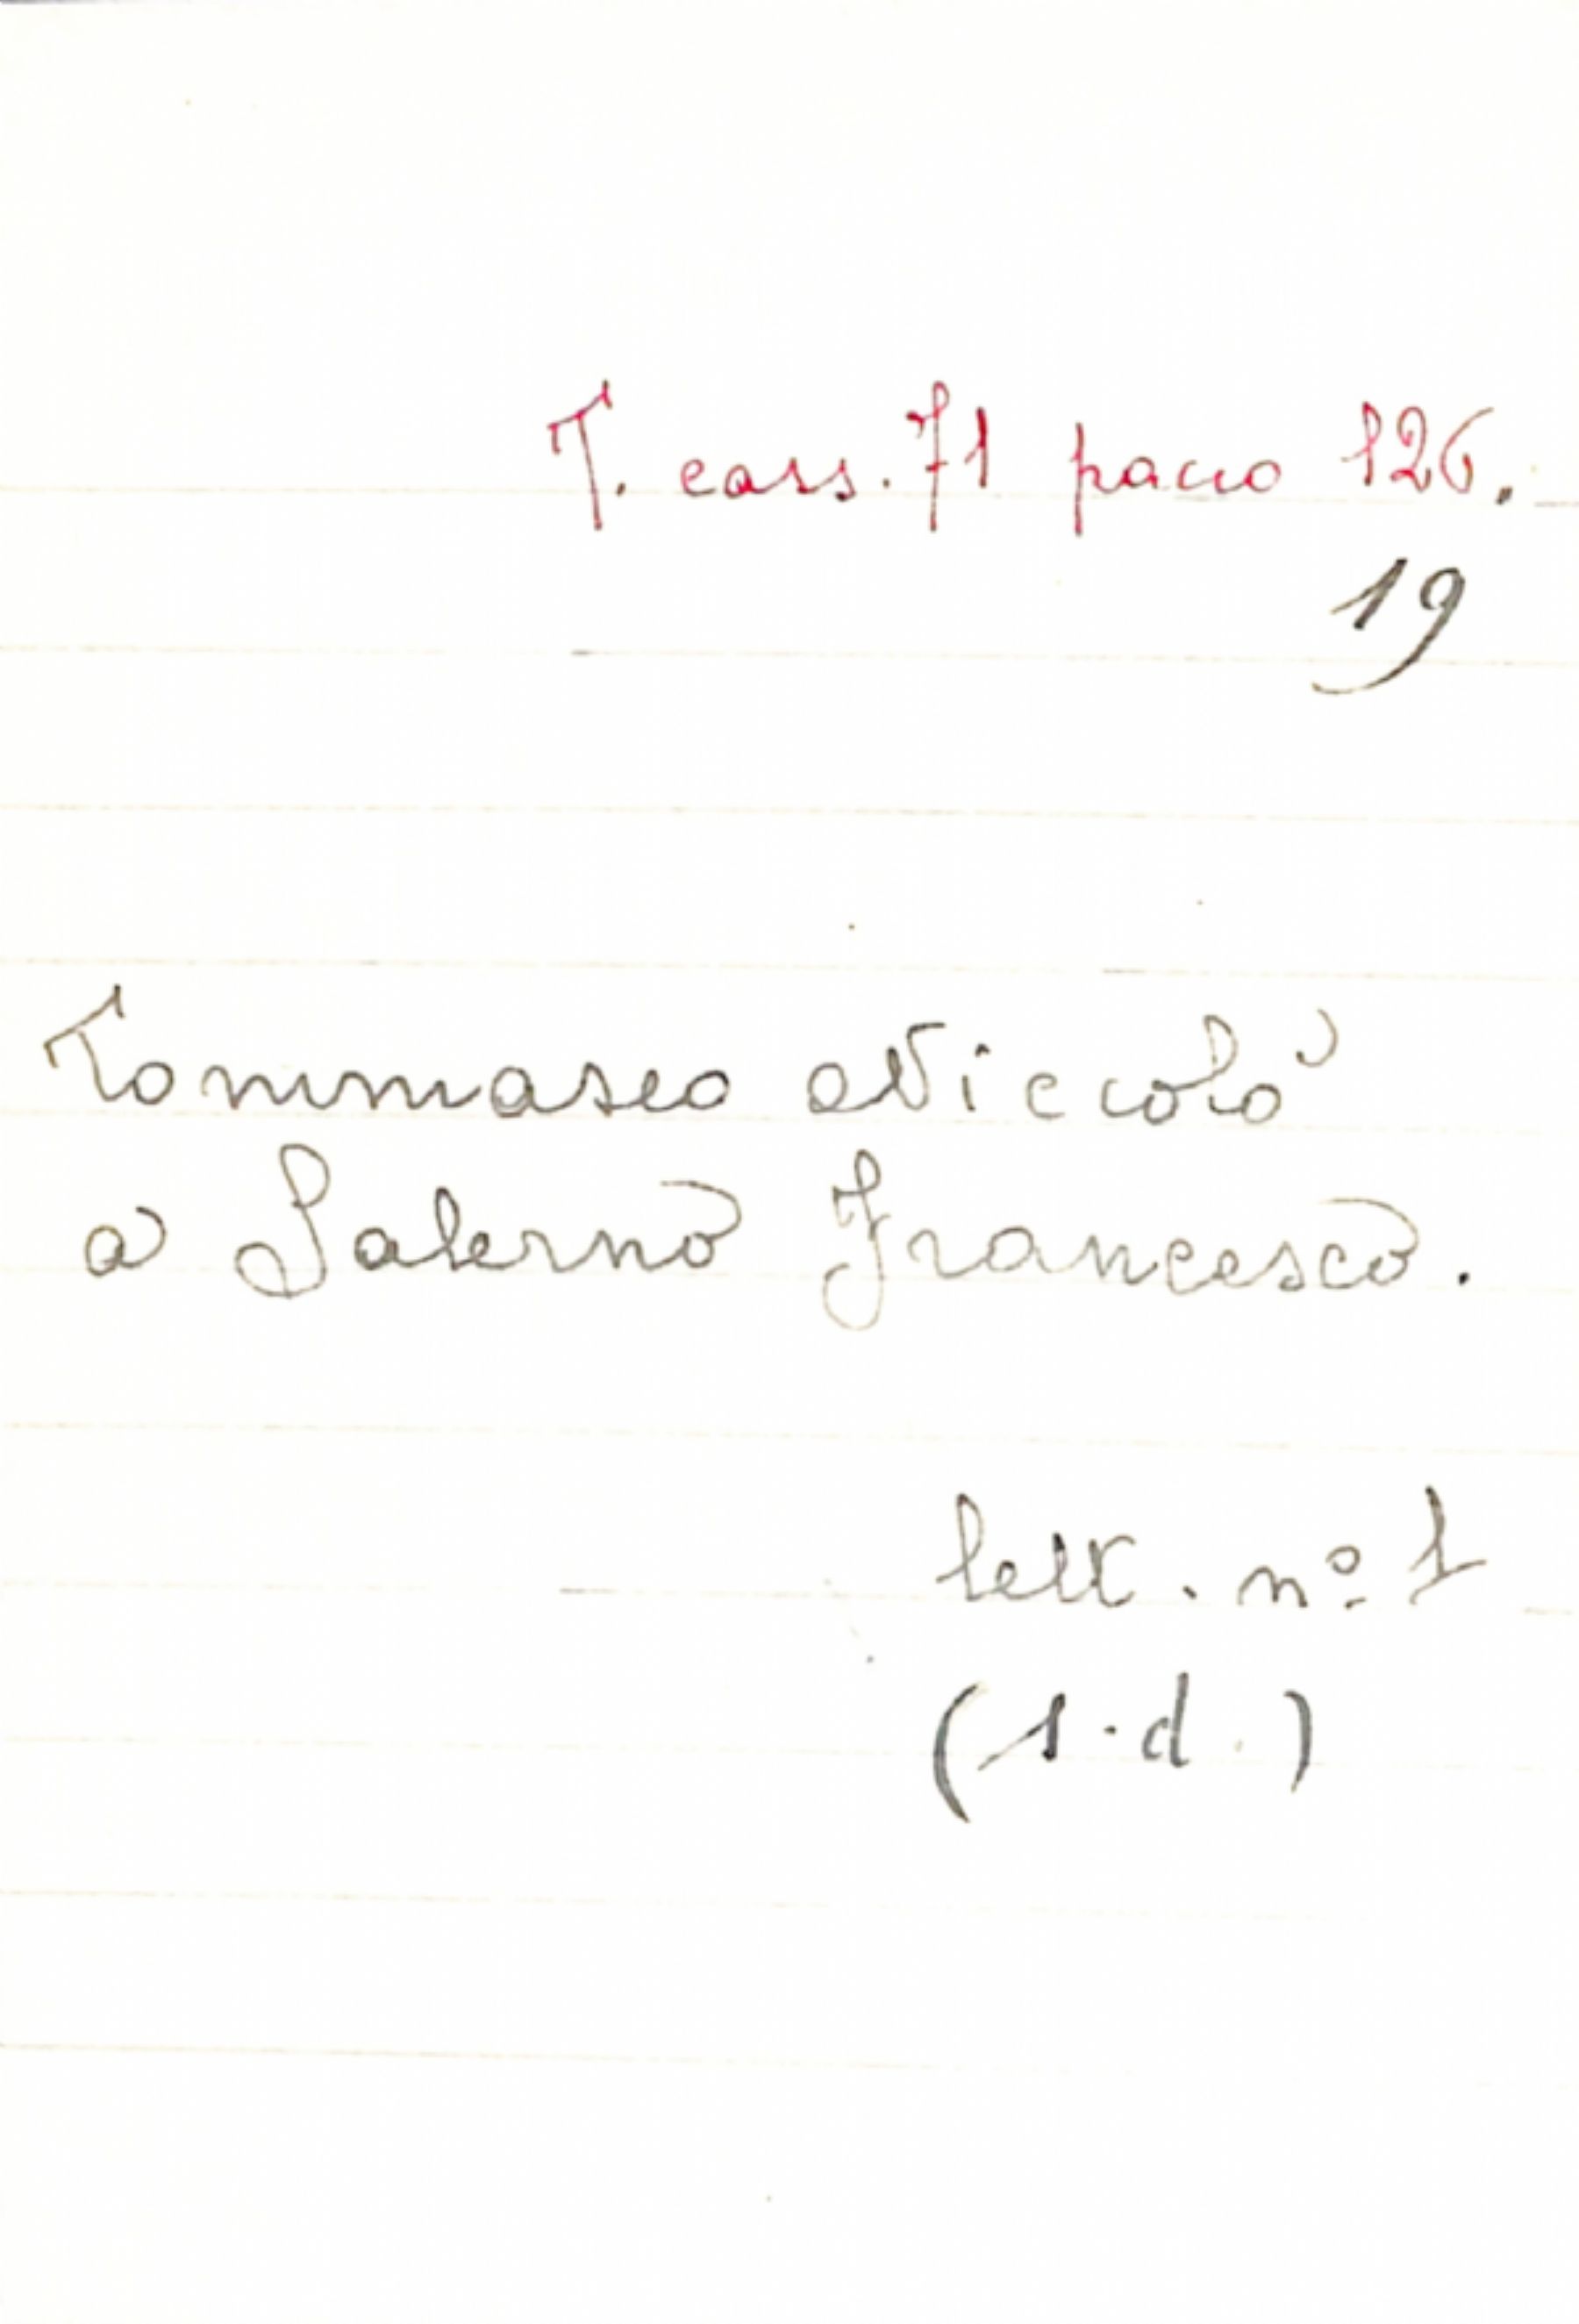 T. cass. 71 pacco 126.
19
Tommaseo Niccolò
a Salerno Francesco.
lett. nº 1
(s.d.)